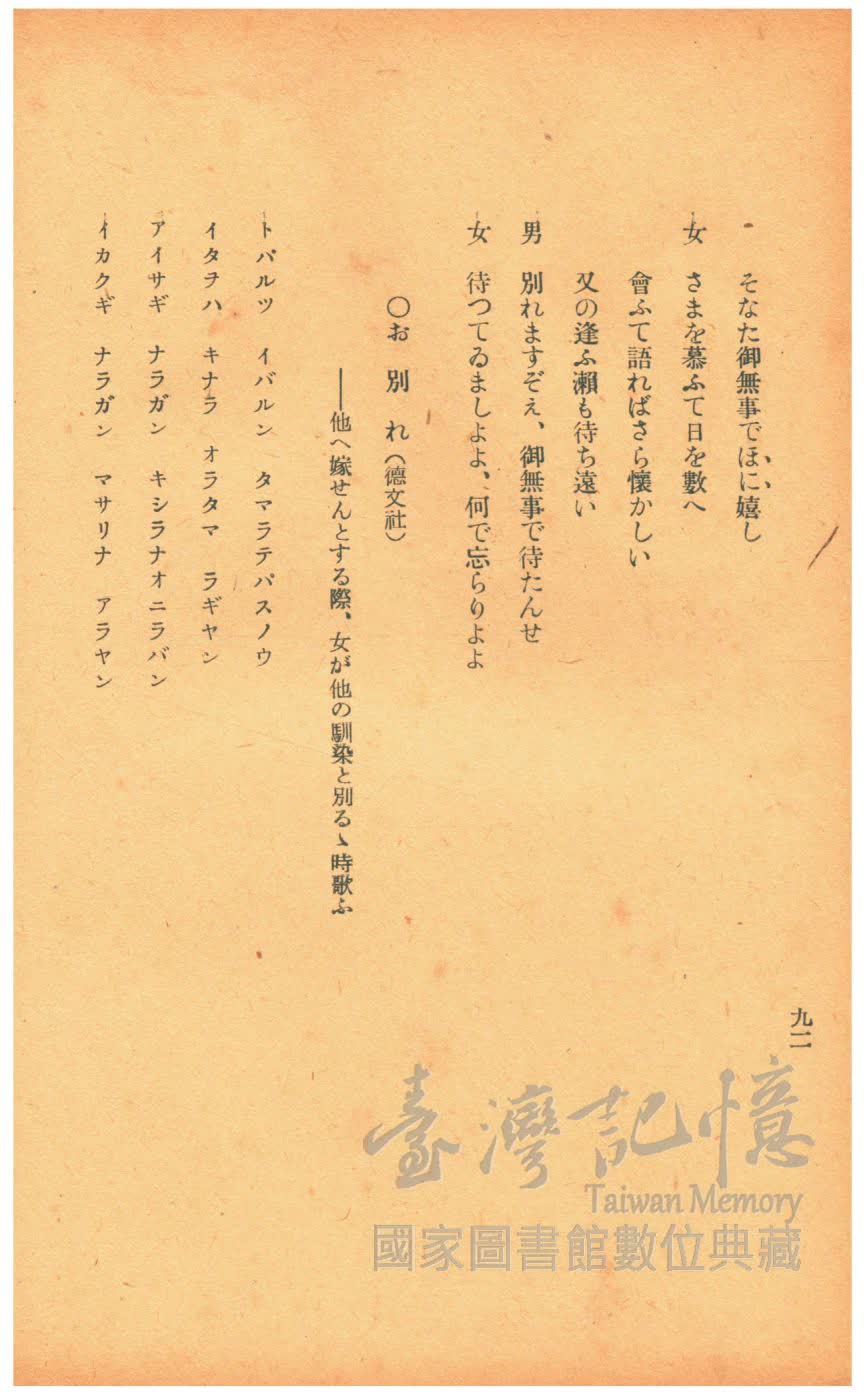 そなた御無事でほに嬉し
女 さまを慕ふて日を數へ
會ふて語ればさら懷かしい
又の逢ふ瀨も待ち遠い
男 別れますぞえ、御無事で待たんせ
女 待つてゐましよよ、何で忘らりよよ
○お別れ(德文社)
――他へ嫁せんとする際、女が他の馴染と別るゝ時歌ふ
トバルツ イバルン タマラテパスノウ
イタラハ キナラ オラタマ ラギヤン
アイサギ ナラガン キシラナオニラバン
イカクギ ナラガン マサリナ アラヤン
九二
臺灣記憶
Taiwan Memory
國家圖書館數位典藏